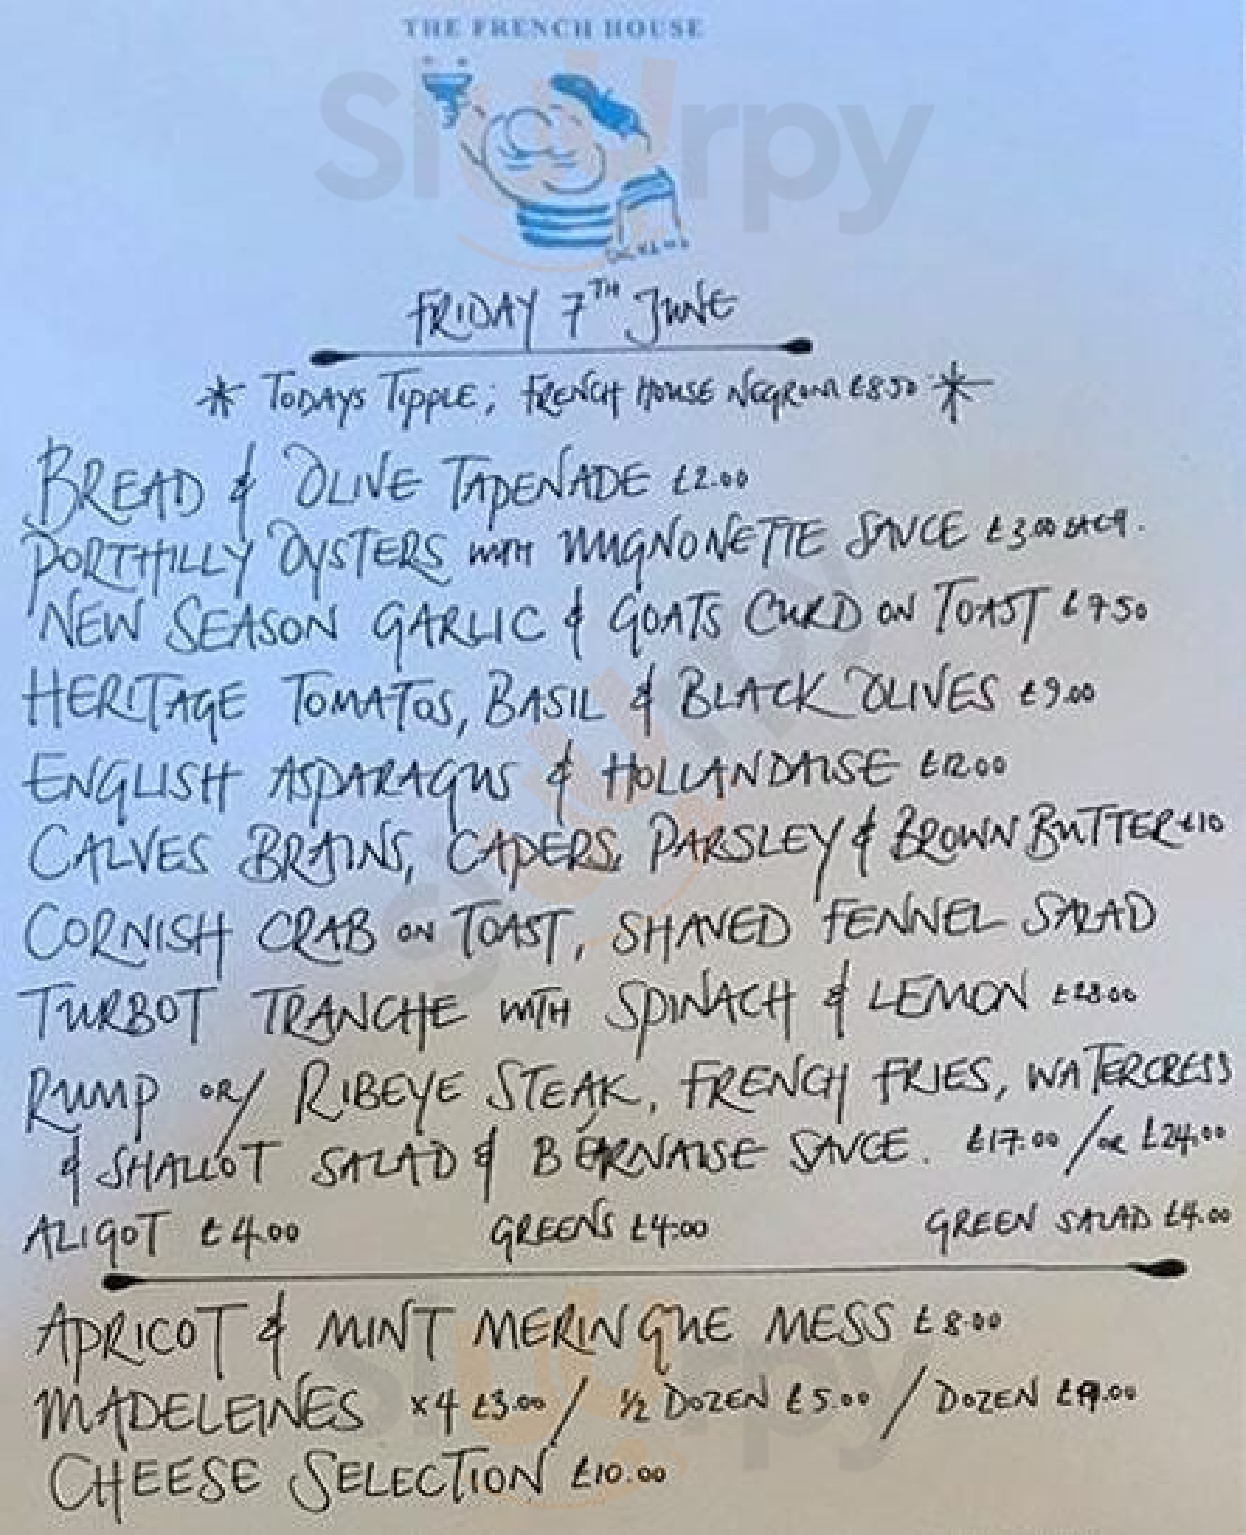 THE FRENCH HOUSE
FRIDAY 7TH JUNE
* TODAYS TIPPLE; FRENCH HOUSE NEGRONI £8.50 *
BREAD & OLIVE TAPENADE £2.00
PORTHILLY OYSTERS WITH MIGNONETTE SAUCE £3.00 EACH.
NEW SEASON GARLIC & GOATS CURD ON TOAST £7.50
HERITAGE TOMATOS, BASIL & BLACK OLIVES £9.00
ENGLISH ASPARAGUS & HOLLANDAISE £12.00
CALVES BRAINS, CAPERS, PARSLEY & BROWN BUTTER £10
CORNISH CRAB ON TOAST, SHAVED FENNEL SALAD
TURBOT TRANCHE WITH SPINACH & LEMON
RUMP OR/ RIBEYE STEAK, FRENCH FRIES, WATERCRESS
& SHALLOT SALAD & BÉARNAISE SAUCE. £17.00 / OR £24.00
ALIGOT £4.00 GREENS £4.00 GREEN SALAD £4.00
APRICOT & MINT MERINGUE MESS £8.00
MADELEINES x4 £3.00 / ½ DOZEN £5.00 / DOZEN £9.00
CHEESE SELECTION £10.00
Slurpy
Slurpy
Slurpy